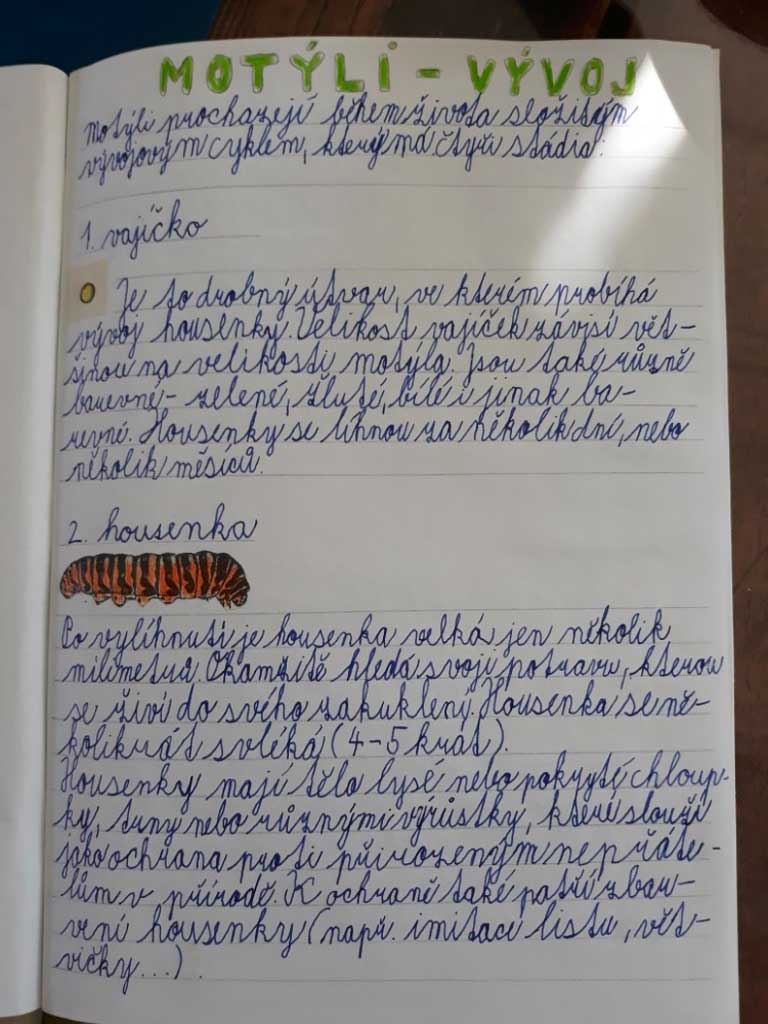 MOTÝLI - VÝVOJ
Motýli procházejí během života složitým
vývojovým cyklem, který má čtyři stádia:
1. vajíčko
Je to drobný útvar, ve kterém probíhá
vývoj housenky. Velikost vajíček závisí vět-
šinou na velikosti motýla. Jsou také různě
barevné - zelené, žluté, bílé i jinak ba-
revné. Housenky se líhnou za několik dní, nebo
několik měsíců.
2. housenka
Po vylíhnutí je housenka velká jen několik
milimetrů. Okamžitě hledá svoji potravu, kterou
se živí do svého zakuklení. Housenka se ně-
kolikrát svléká (4-5 krát).
Housenky mají tělo lysé nebo pokryté chloup-
ky, trny nebo různými výrůstky, které slouží
jako ochrana proti přirozeným nepřáte-
lům v přírodě. K ochraně také patří zbar-
vení housenky (např. imitací listu, vět-
vičky...).